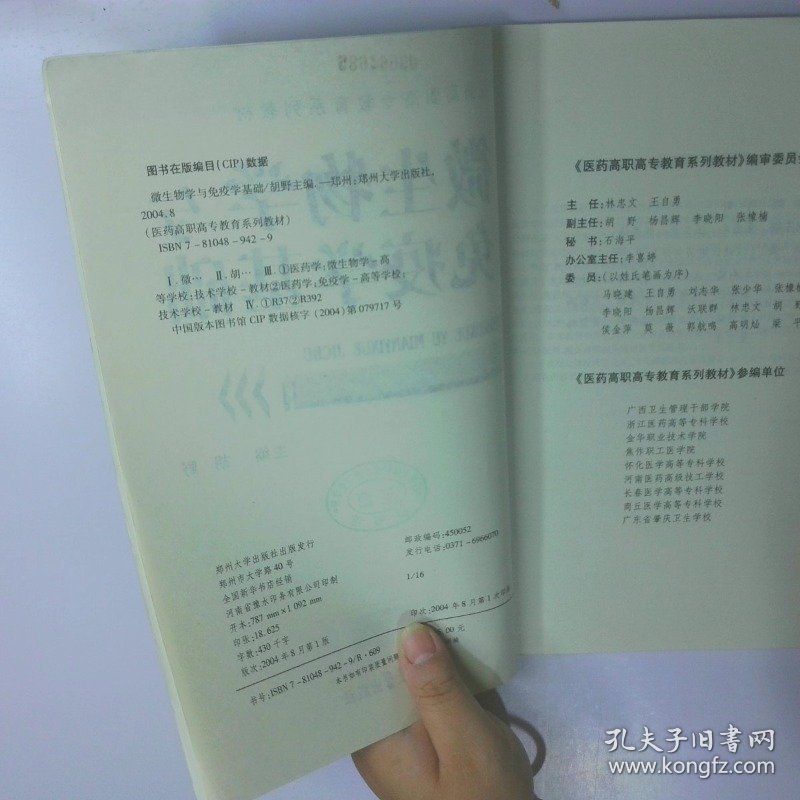 图书在版编目(CIP)数据
微生物学与免疫学基础/胡野主编.—郑州:郑州大学出版社,
2004.8
(医药高职高专教育系列教材)
ISBN 7-81048-942-9
Ⅰ.微… Ⅱ.胡… Ⅲ.①医药学:微生物学-高
等学校:技术学校-教材②医药学:免疫学-高等学校:
技术学校-教材 Ⅳ.①R37②R392
中国版本图书馆CIP数据核字(2004)第079717号
郑州大学出版社出版发行
郑州市大学路40号
邮政编码:450052
全国新华书店经销
发行电话:0371-6966070
河南省豫水印务有限公司印制
开本:787 mm×1 092 mm
1/16
印张:18.625
字数:430千字
版次:2004年8月第1版
印次:2004年8月第1次印
00元
书号:ISBN 7-81048-942-9/R·609
本书如有印装质量问题
《医药高职高专教育系列教材》编审委员
主 任:林忠文 王自勇
副主任:胡 野 杨昌辉 李晓阳 张橡楠
秘 书:石海平
办公室主任:李喜婷
委 员:(以姓氏笔画为序)
马晓健 王自勇 刘志华 张少华 张橡
李晓阳 杨昌辉 沃联群 林忠文 胡 野
侯金萍 莫 薇 郭航鸣 高明灿 梁
《医药高职高专教育系列教材》参编单位
广西卫生管理干部学院
浙江医药高等专科学校
金华职业技术学院
焦作职工医学院
怀化医学高等专科学校
河南医药高级技工学校
长春医学高等专科学校
商丘医学高等专科学校
广东省肇庆卫生学校
孔夫子旧书网
www.kongfz.com